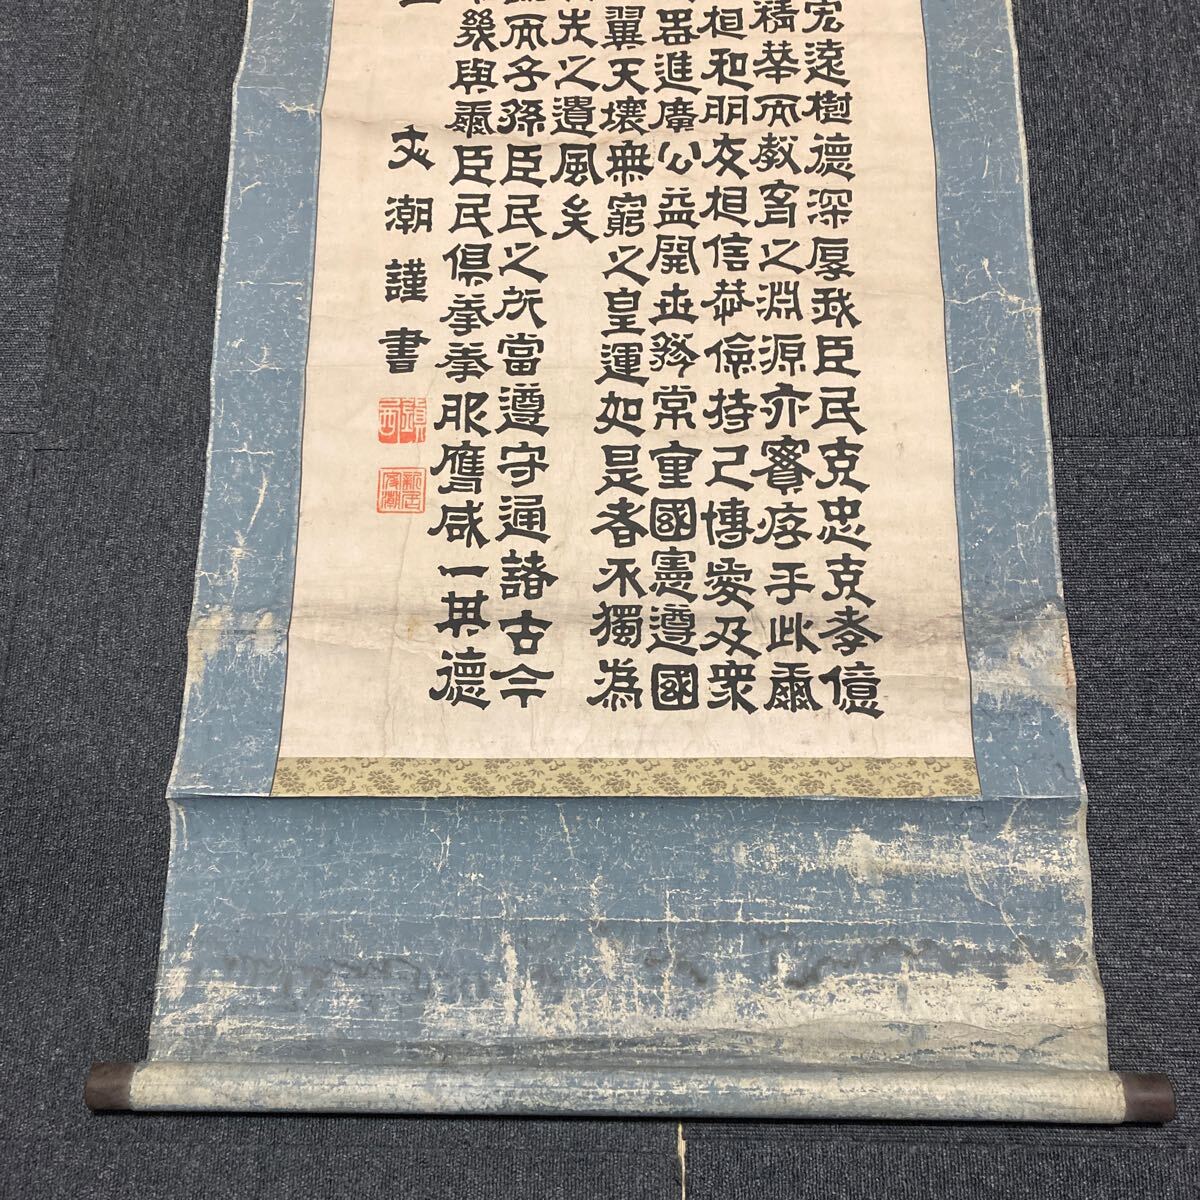 宏遠樹德深厚我臣民克忠克孝億
精華而教育之淵源亦實存乎此爾
相和朋友相信恭儉持己博愛及衆
器進廣公益開世務常重國憲遵國
翼天壤無窮之皇運如是者不獨為
先之遺風矣
而子孫臣民之所當遵守通諸古今
幾與爾臣民俱拳拳服膺咸一其德
文潮謹書